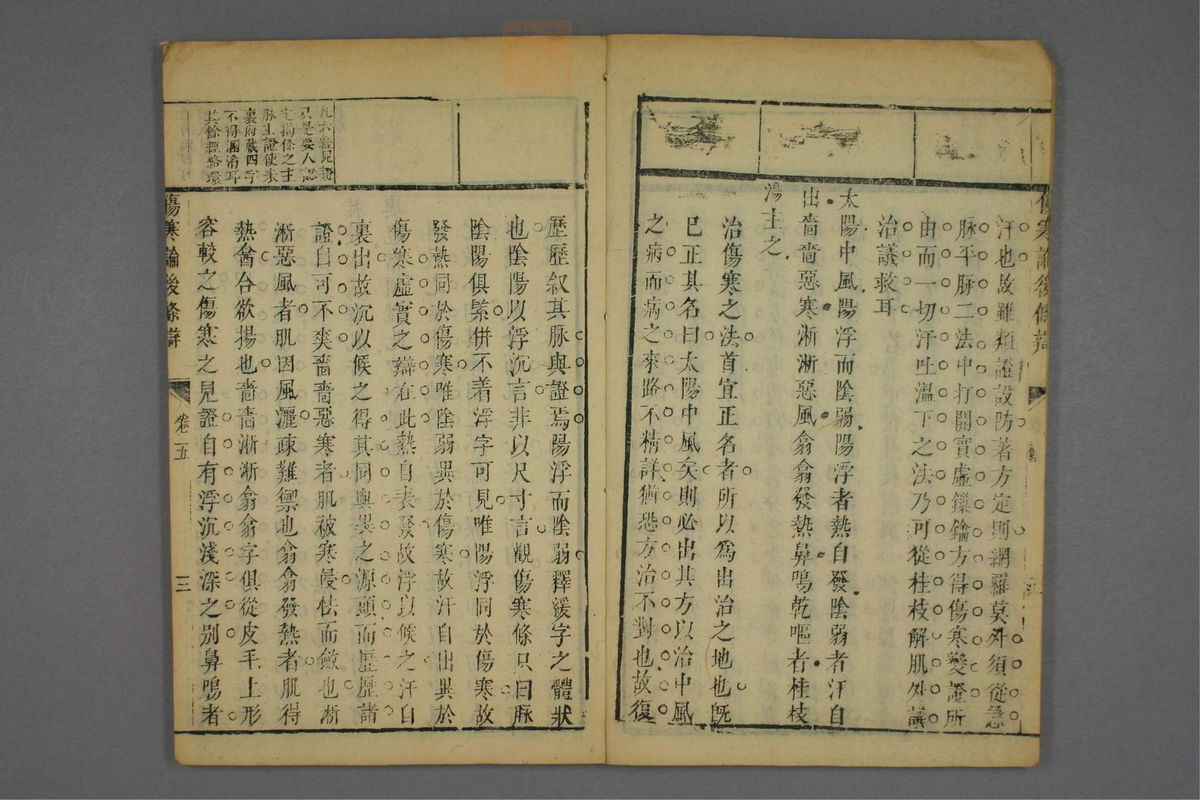 傷寒論後條辯
汗也故雖類證設防著方定則網羅莫外須從急
脉平脉二法中打開實虛鎖鑰方得傷寒變證所
由而一切汗吐溫下之法乃可從桂枝解肌外議
治議救耳
太陽中風陽浮而陰弱陽浮者熱自發陰弱者汗自
出嗇嗇惡寒淅淅惡風翕翕發熱鼻鳴乾嘔者桂枝
湯主之
治傷寒之法首宜正名者所以爲出治之地也旣
已正其名曰太陽中風矣則必出其方以治中風
之病而病之來路不精詳猶恐方治不對也故復
歷歷叙其脉與證焉陽浮而陰弱釋緩字之體狀
也陰陽以浮沉言非以尺寸言觀傷寒條只曰脉
陰陽俱緊併不着浮字可見唯陽浮同於傷寒故
發熱同於傷寒唯陰弱異於傷寒故汗自出異於
傷寒虛實之辯在此熱自表發故浮以候之汗自
裏出故沉以候之得其同與異之源頭而歷歷諸
證自可不爽嗇嗇惡寒者肌被寒侵怯而斂也淅
淅惡風者肌因風灑疎難禦也翕翕發熱者肌得
熱會合欲揚也嗇嗇淅淅翕翕字俱從皮毛上形
容較之傷寒之見證自有浮沉淺深之别鼻鳴者
凡六經見證
只是要人認
定揭條之主
脉主證使表
裏府藏四字
不得溷淆耳
其餘經絡
傷寒論後條辯
卷五
三